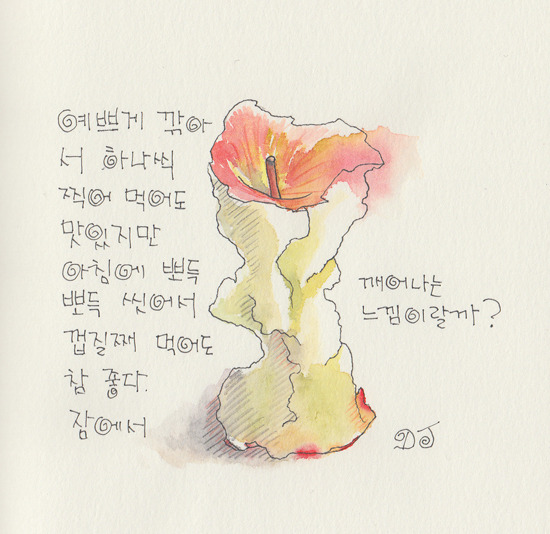 예쁘게 깎아
서 하나씩
찍어 먹어도
맛있지만
아침에 뽀득
뽀득 씻어서
껍질째 먹어도
참 좋다.
잠에서
깨어나는
느낌이랄까?
DJ